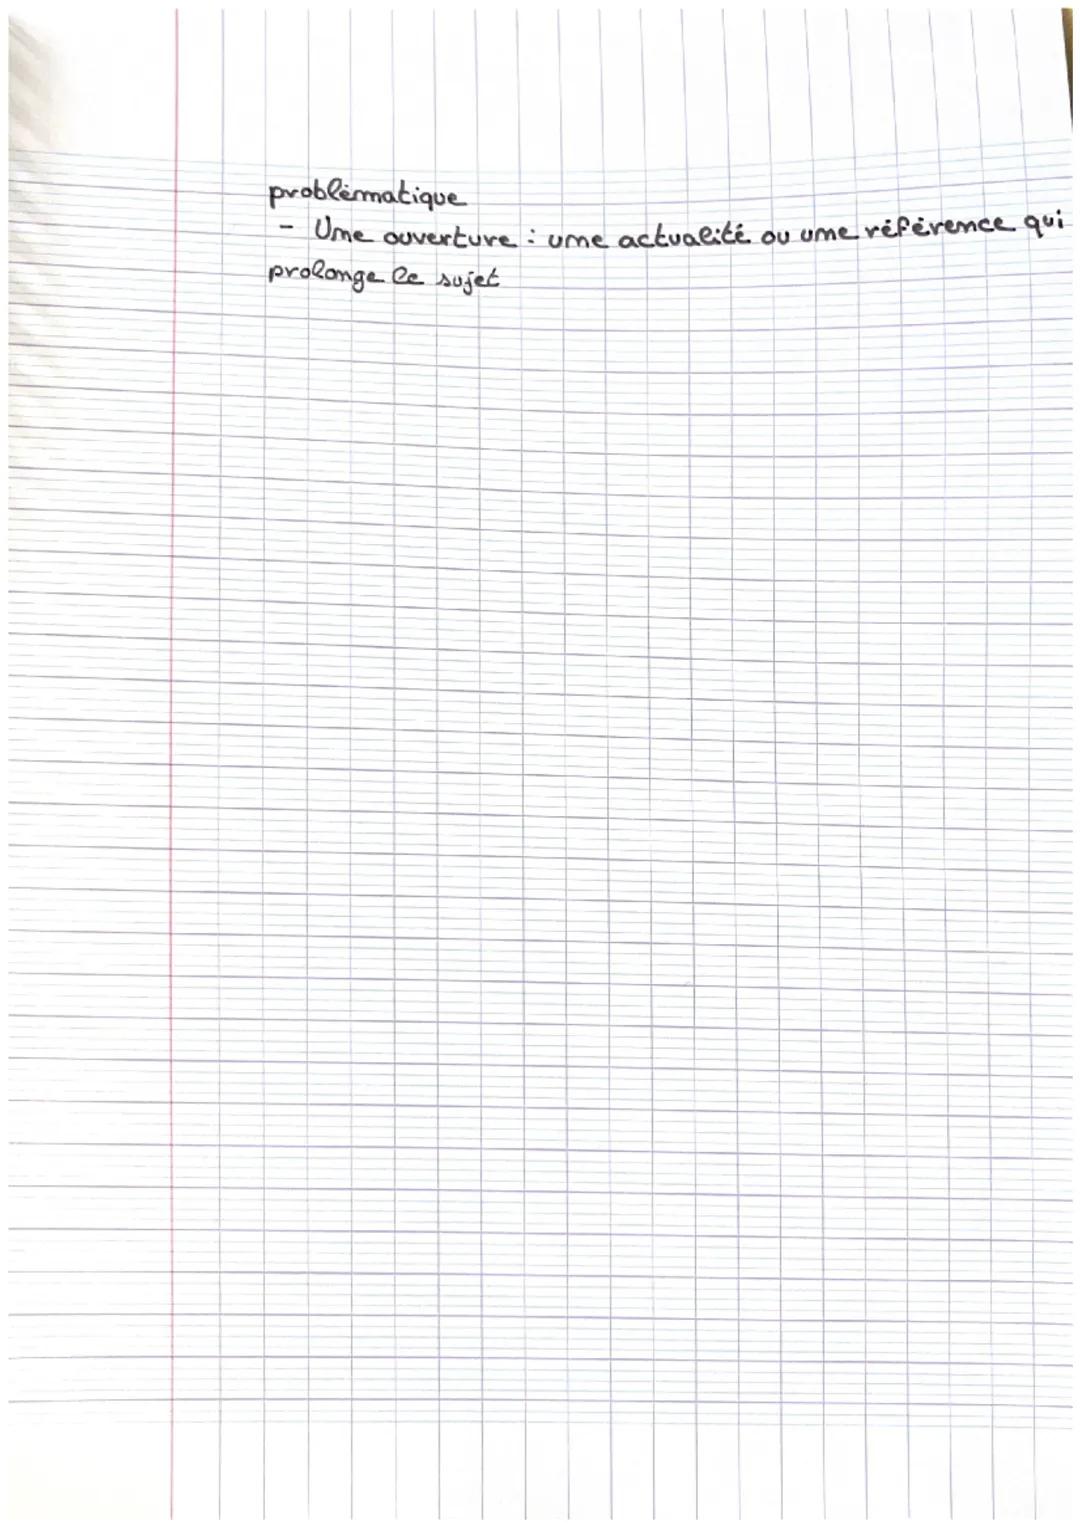 problématique
- Une ouverture : une actualité ou une référence qui
prolonge le sujet